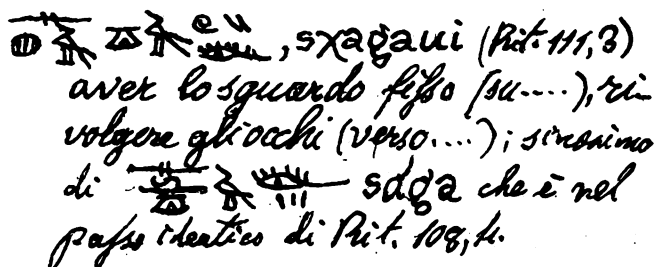 , sχagaui (Rit. 111, 3)
aver lo sguardo fisso (su....), ri-
volgere gli occhi (verso....); sinonimo
di sdga che è nel
passo identico di Rit. 108, 4.